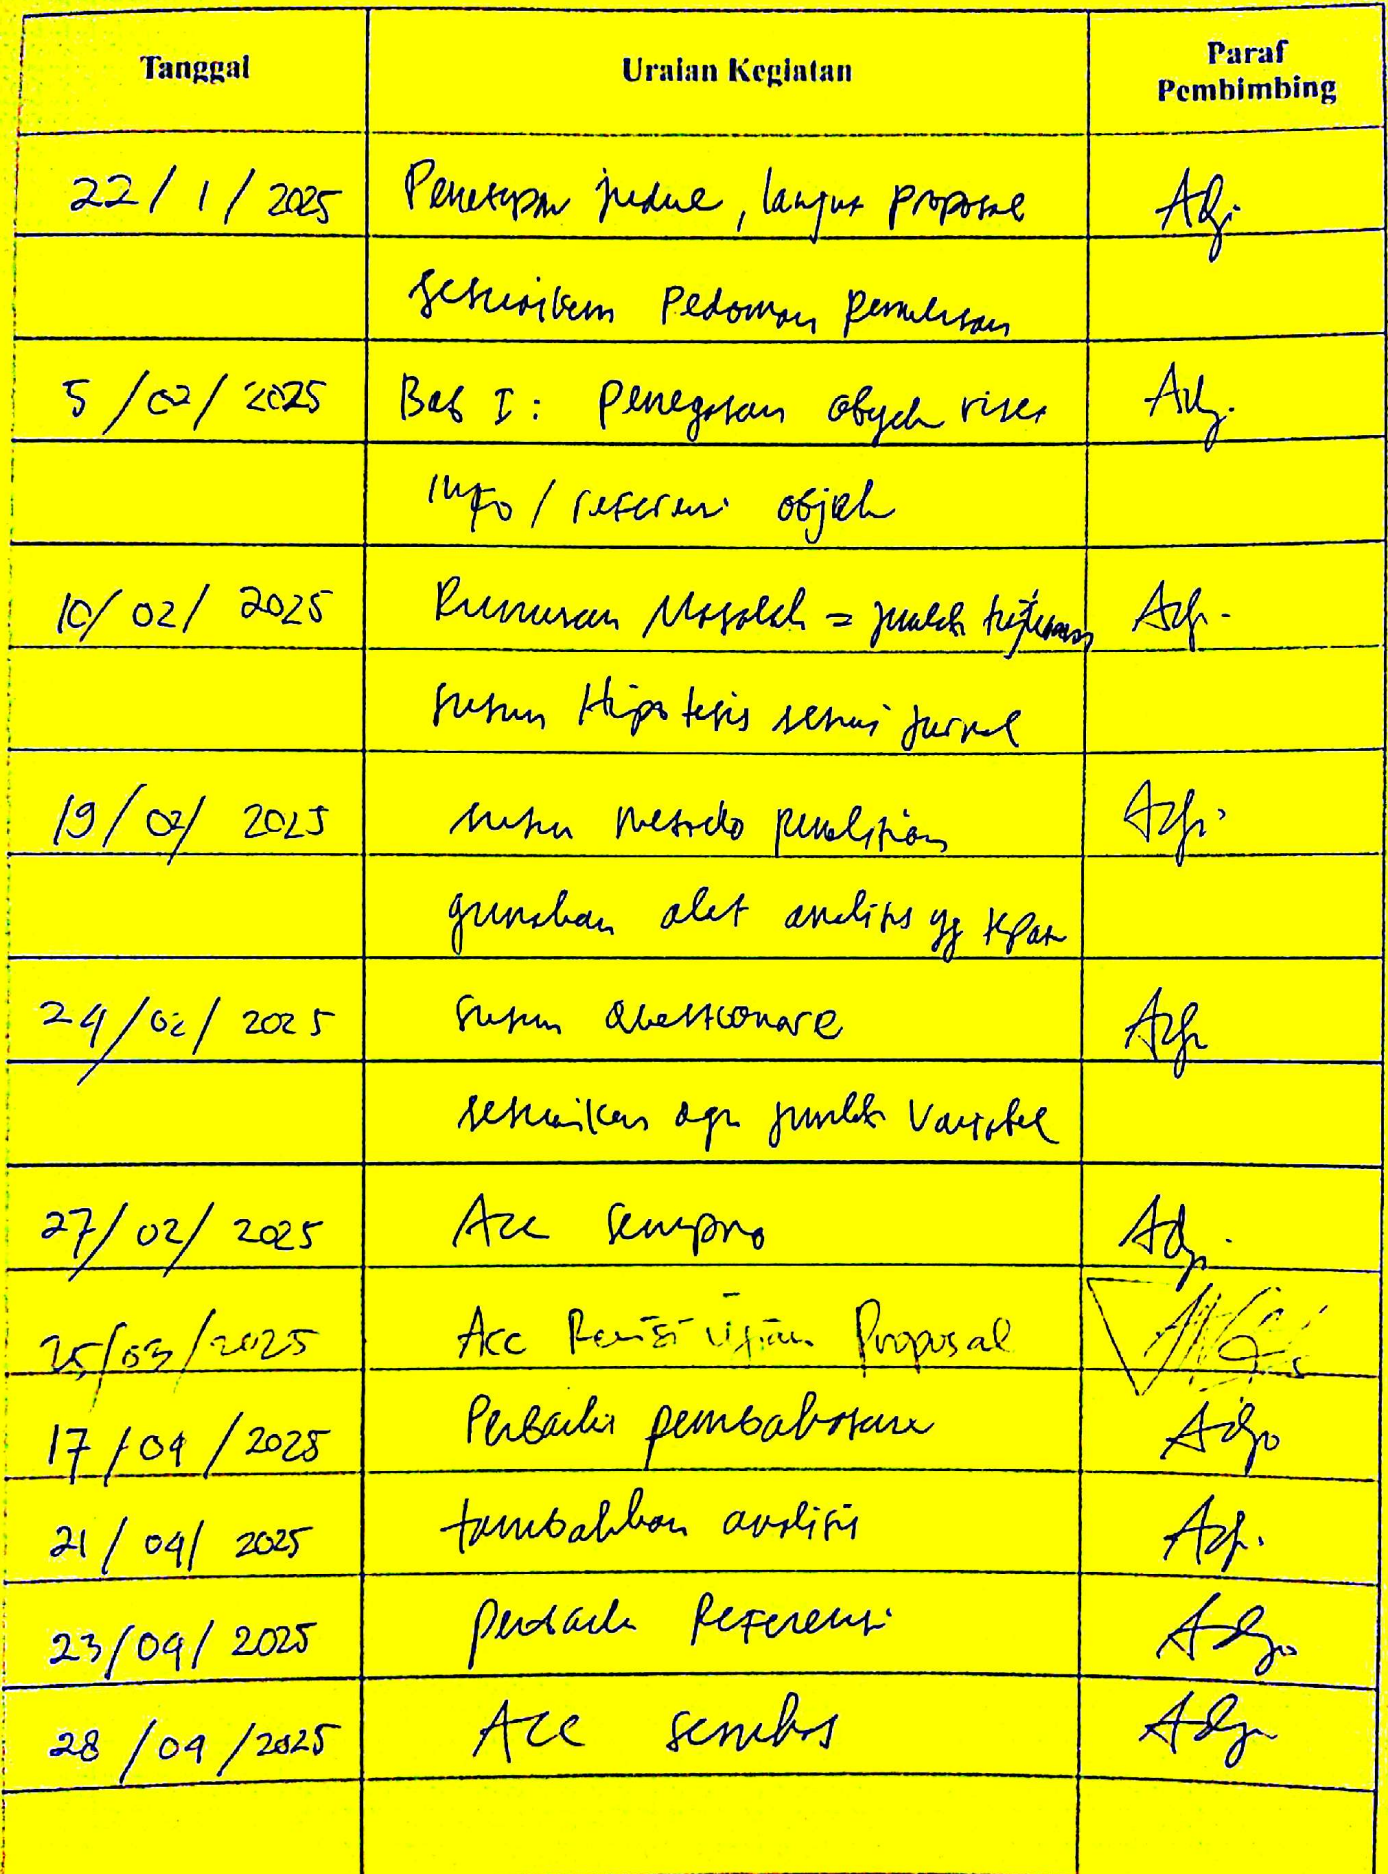 Tanggal Uraian Kegiatan Paraf
Pembimbing
22/1/2025 Penetapan judul, lanjut proposal
sesuaikan Pedoman penulisan
5/02/2025 Bab I: Penegasan obyek riset
info/referensi objek
10/02/2025 Rumusan Masalah = jumlah
susun Hipotesis sesuai jurnal
19/02/2025 susun metode penelitian
gunakan alat analisis yg tepat
24/02/2025 susun Questionare
sesuaikan dgn jumlah Variabel
27/02/2025 Acc sempro
25/03/2025 Acc Revisi Ujian Proposal
17/04/2025 Perbaiki pembahasan
21/04/2025 tambahkan analisis
23/04/2025 perbaiki Referensi
28/04/2025 Acc semhas